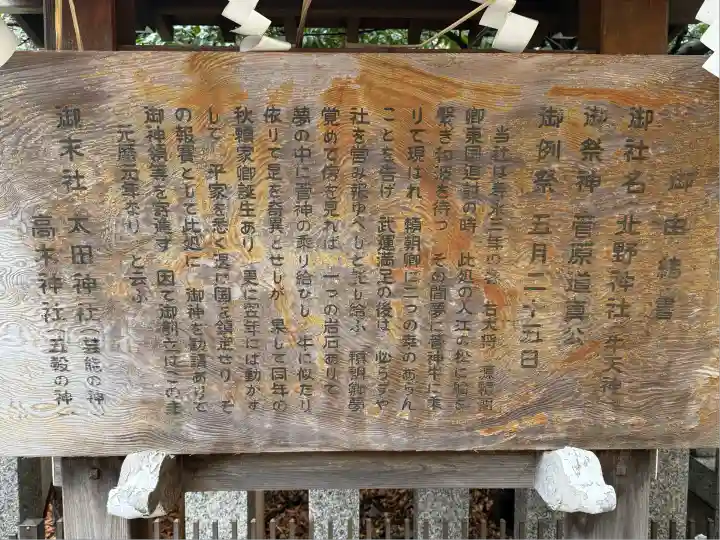 御由緒書
御社名 北野神社(牛天神)
御祭神 菅原道真公
御例祭 五月二十五日
当社は寿永三年の春 右大将 源頼朝
卿東国追討の時 此処の入江の松に船を
繋ぎ和波を待つ その間夢に菅神牛に乗
りて現はれ、頼朝卿に二つの幸のあらん
ことを告げ 武運満足の後は 必らずや
社を営み報ゆべしと托し給ふ 頼朝卿夢
覚めて傍を見れば 一つの岩石ありて
夢の中に菅神の乗り給ひし 牛に似たり
依りて是を奇異とせしが 果して同年の
秋頼家卿誕生あり 更に翌年には動かず
して 平家を悉く
国を鎮定せり そ
の報賽として此処に 御神を勧請ありて
御神領等を寄進す 因て御創立はこの年
元暦元年なり と云ふ
御末社 太田神社(芸能の神)
高木神社(五穀の神)